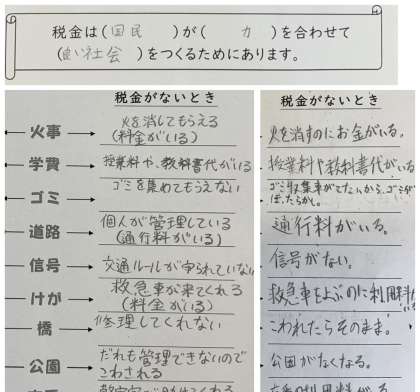 税金は(国民)が(力)を合わせて
(良い社会)をつくるためにあります。
税金がないとき
火事 火を消してもらえる
(料金がいる)
学費 授業料や、教科書代がいる
ゴミ ゴミを集めてもらえない
道路 個人が管理している
(通行料がいる)
信号 交通ルールが守られていない
けが 救急車が来てくれる
(料金がいる)
橋 修理してくれない
公園 だれも管理できないので
こわされる
税金がないとき
火を消すのにお金がいる。
授業料や教科書代がいる
ゴミ収集車がこないから、ゴミが
ほったらかし。
通行料がいる。
信号がない。
救急車をよぶのに利用料がいる
こわれたらそのまま。
公園がなくなる。